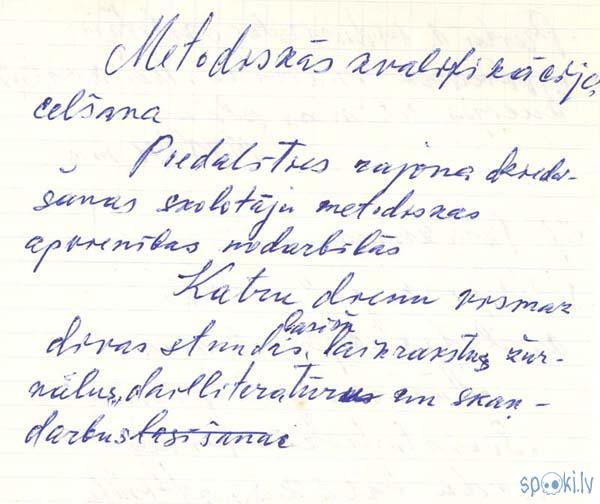 Metodiskās kvalifikācijas
celšana
Piedalīties rajona dziedā-
šanas skolotāju metodiskās
apvienības nodarbībās
Katru dienu vismaz
divas stundas lasīt laikrakstus, žur-
nālus, daiļliteratūru un skaņ-
darbus lasīšanai
spoki.lv